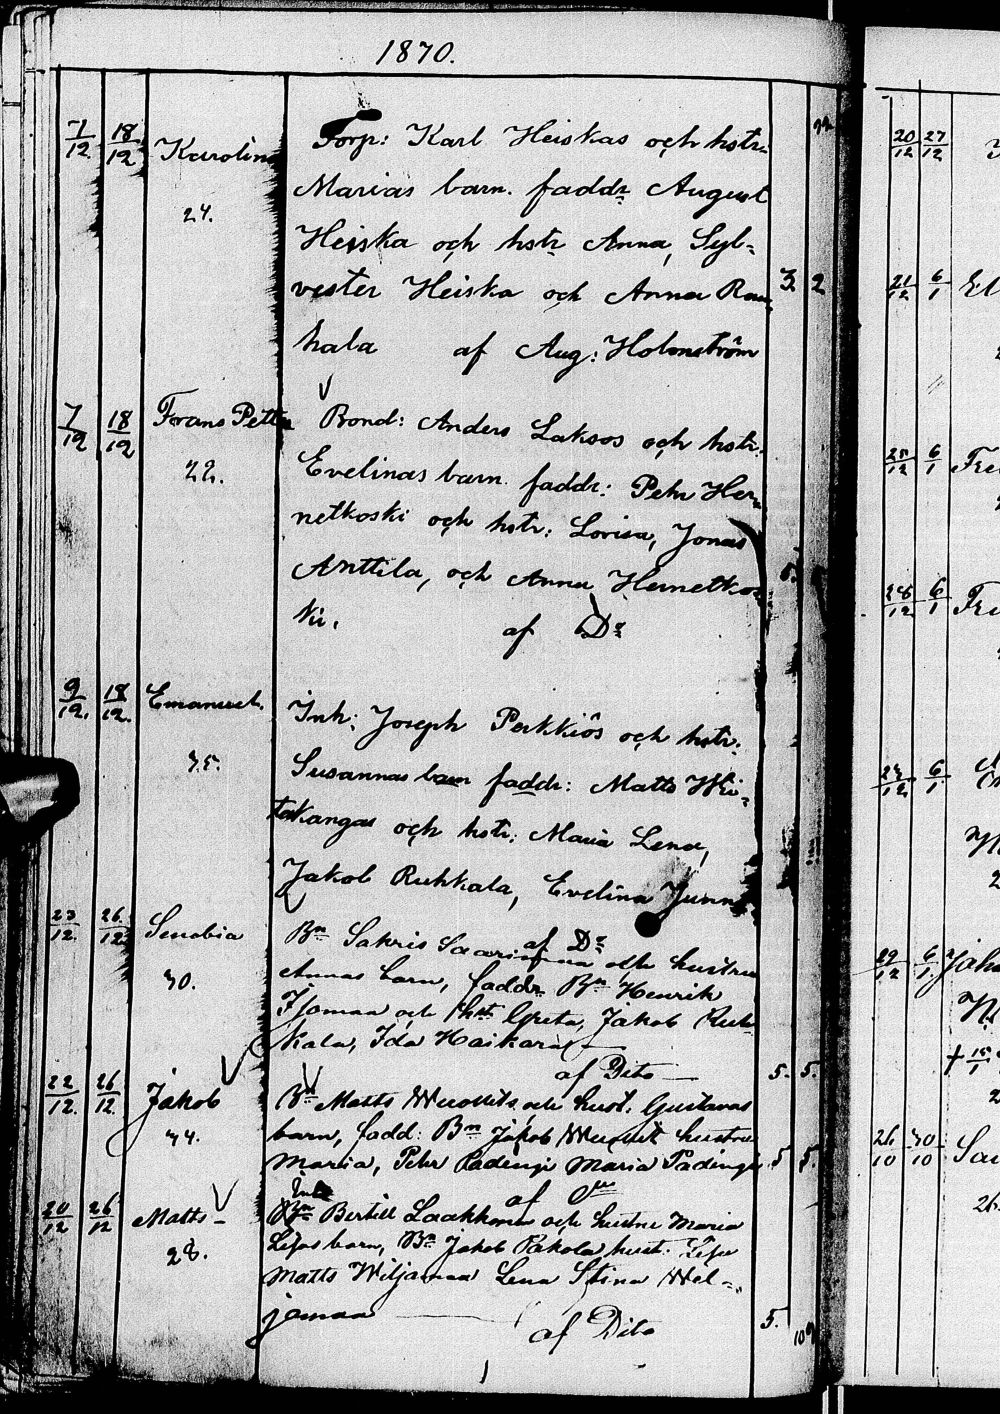 1870.
7/12 18/12 Karolina Torp: Karl Heiskas och hstr:
Marias barn. faddr August
24.
Heiska och hstr Anna, Syl-
vester Heiska och Anna Rau-
3. 2
hala af Aug: Holmström
7/12 18/12 Frans Petter Bond: Anders Laksos och hstr.
22. Evelinas barn. faddr: Petr Her-
netkoski och hstr: Lovisa, Jonas
Anttila, och Anna Hernetkos-
5.
ki. af Do
9/12. 18/12. Emanuel. Inh: Joseph Perkkiös och hstr:
35. Susannas barn faddr: Matts Hei-
takangas och hstr: Maria Lena,
Jakob Ruhkala, Evelina Junn
af Do
23/12. 26/12 Senobia Bn Sakris Saarimaa och hustru
30. Annas barn, faddr Bn Henrik
Isomaa och hst Greta, Jakob Ruh-
kala, Ida Haikara
af Dito
5. 5.
22/12. 26/12 Jakob Bn Matts och hust. Gustavas
34. barn, fadd: Bn Jakob hustru
Maria, Petr Padinge Maria Padinge
5 5.
af
20/12 26/12 Matts Bn Bertill Laakkonen och hustru Maria
28. Lisas barn, Bn Jakob Pakola hust.
Matts Wiljamaa Lena Stina Wil-
jamaa
5.
af Dito
20/12 27/12
21/12 6/1
25/12 6/1 Fre
26/12 6/1 Fre
23/12 6/1
29/12 6/1 Joh
+ 15/1
26/10 30/10
26.